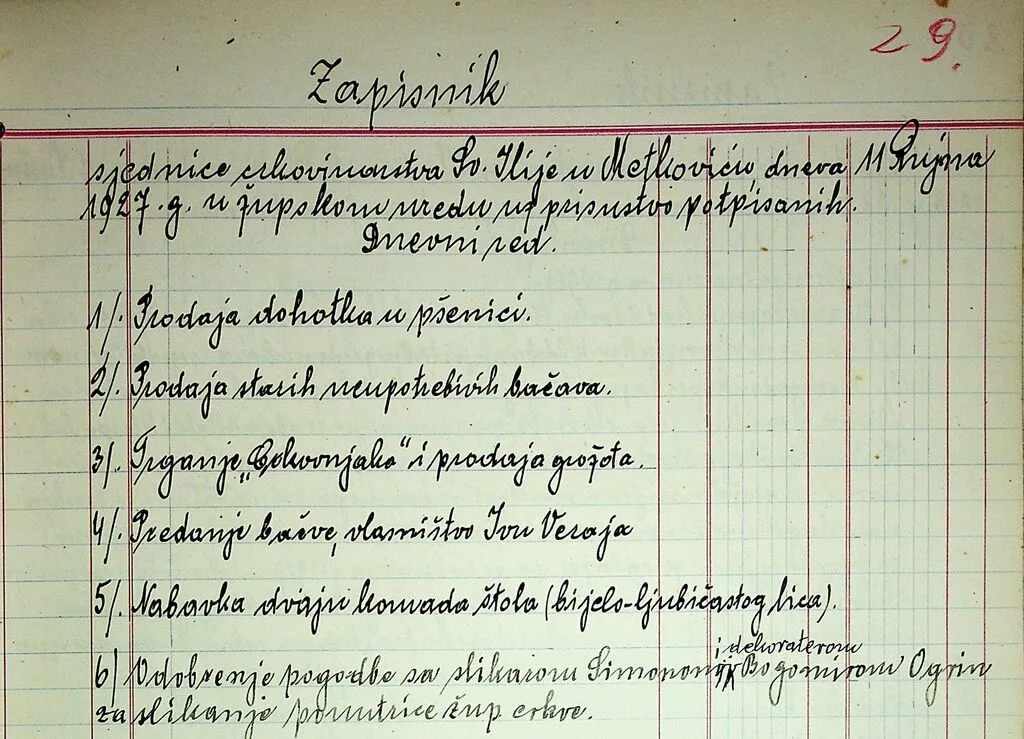 29.
Zapisnik
sjednice crkovinarstva Sv. Ilije u Metkoviću, dneva 11 Rujna
1927. g. u župskom uredu uz prisustvo potpisanih.
Dnevni red.
1/. Prodaja dohotka u pšenici.
2/. Prodaja starih neupotrebivih bačava.
3/. Trganje „Crkovnjaka" i prodaja grožđa.
4/. Predanje bačve, vlasništvo Ivu Veraja
5/. Nabavka dvaju komada štola (bijelo-ljubičastog lica).
i dekoraterom
6/ Udobrenje pogodbe sa slikarom Simonom Bogomirom Ogrin
za slikanje ponutrice žup crkve.